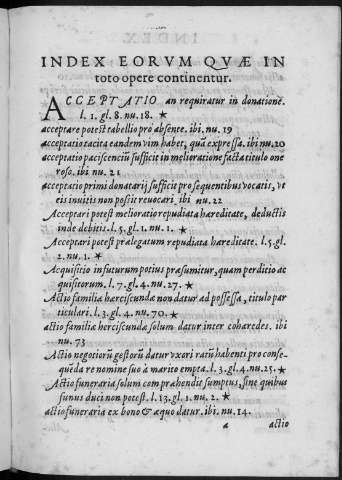 INDEX EORVM QVÆ IN
toto opere continentur.
ACCEPTATIO an requiratur in donatione.
l. 1. gl. 8. nu. 18. ★
acceptare potest tabellio pro absente. ibi. nu. 19
acceptatio tacita eandem vim habet, quā expressa. ibi nu. 20
acceptatio paciscentiū sufficit in melioratione facta titulo one
roso. ibi nu. 21
acceptatio primi donatarij sufficit pro sequentibus vocatis, vt
eis inuitis non possit reuocari. ibi nu. 22
Acceptari potest melioratio repudiata hæreditate, deductis
inde debitis. l. 5. gl. 1. nu. 1. ★
Acceptari potest prælegatum repudiata hæreditate. l. 5. gl.
2. nu. 1. ★
Acquisitio in futurum potius præsumitur, quam perditio ac
quisitorum. l. 7. gl. 4. nu. 27. ★
Actio familiæ hærciscundæ non datur ad possessa, titulo par
ticulari. l. 3. gl. 4. nu. 70. ★
actio familiæ herciscundæ solum datur inter cohæredes. ibi
nu. 73
Actio negotiorū gestorū datur vxori ratū habenti pro conse-
quēda re nomine suo à marito empta. l. 3. gl. 4. nu. 25. ★
Actio funeraria solum compræhendit sumptus, sine quibus
funus duci non potest. l. 13. gl. 1. nu. 2. ★
actio funeraria ex bono & æquo datur. ibi. nu. 14.
a actio